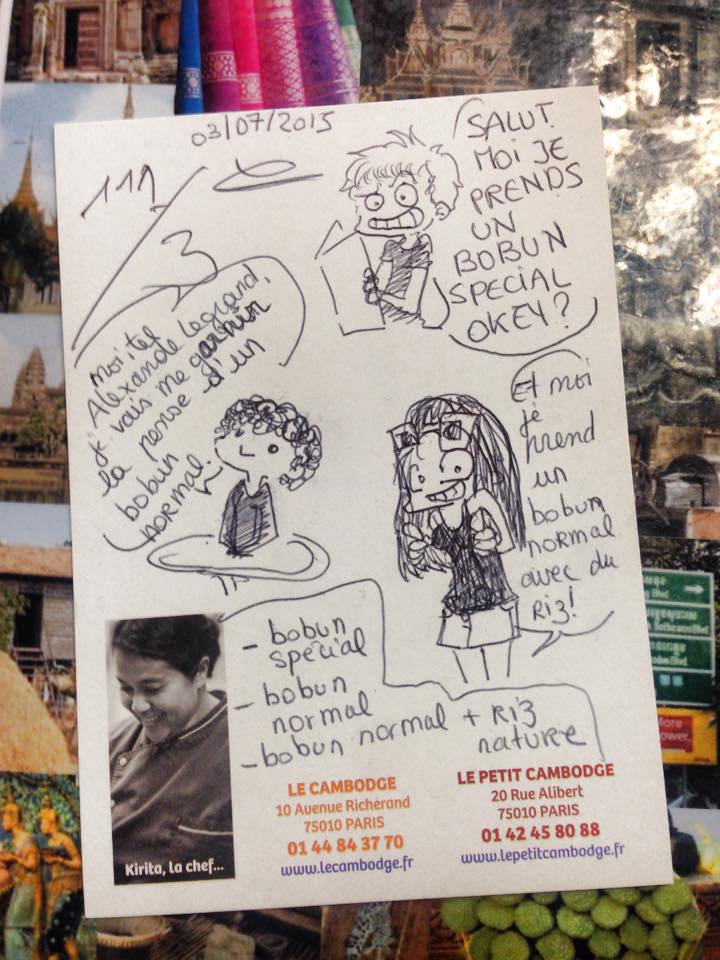 03/07/2015
111
3
SALUT
MOI JE
PRENDS
UN
BOBUN
SPECIAL
OKEY?
Alexandre Legrand,
je vais me garnir
la panse d'un
bobun
NORMAL.
Et moi
je
prend
un
bobun
normal
avec du
Riz!
- bobun
spécial
- bobun
normal
- bobun normal + Riz
nature
Kirita, la chef...
LE CAMBODGE
10 Avenue Richerand
75010 PARIS
01 44 84 37 70
www.lecambodge.fr
LE PETIT CAMBODGE
20 Rue Alibert
75010 PARIS
01 42 45 80 88
www.lepetitcambodge.fr
More